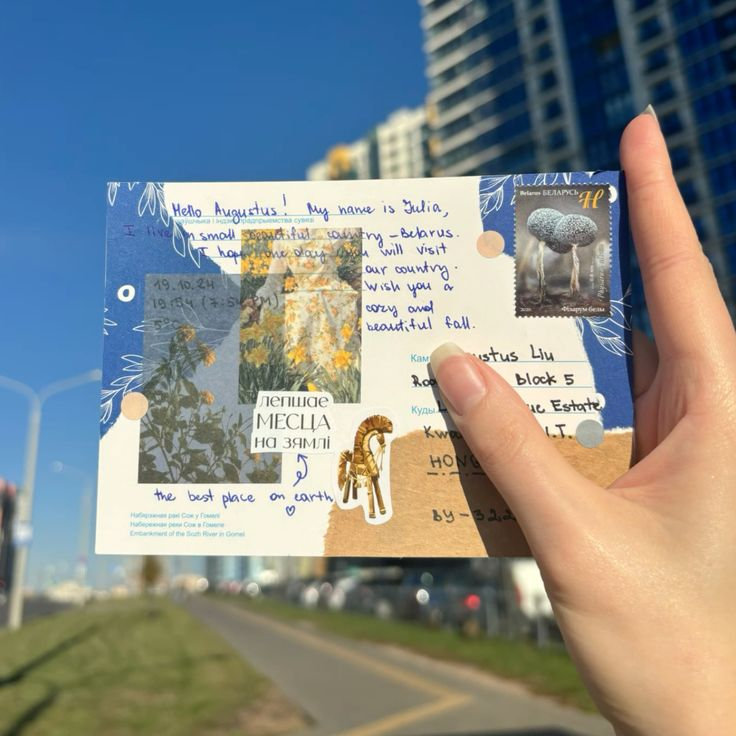 Hello Augustus! My name is Julia,
I live in small beautiful country - Belarus.
I hope one day you will visit
our country.
Wish you a
cozy and
beautiful fall.
прадпрыемства сувязі
19.10.24
19:54 (7:54 PM)
5°C
лепшае
МЕСЦА
на зямлі
the best place on earth
Набярэжная ракі Сож у Гомелі
Набережная реки Сож в Гомеле
Embankment of the Sozh River in Gomel
Belarus БЕЛАРУСЬ
H
Фізарум белы
Кам
ustus Liu
Block 5
Куды
ue Estate
Kw I.T.
HONG
BY-322